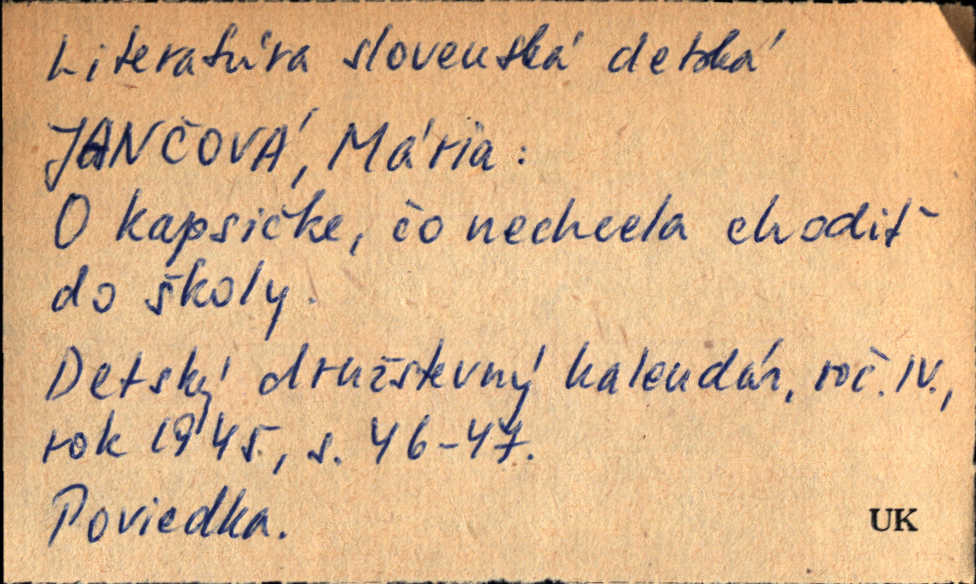 Literatúra slovenská detská
JANČOVÁ, Mária:
O kapsičke, čo nechcela chodiť
do školy.
Detský družstevný kalendár, roč. IV.,
rok 1945., s. 46-47.
Poviedka.
UK